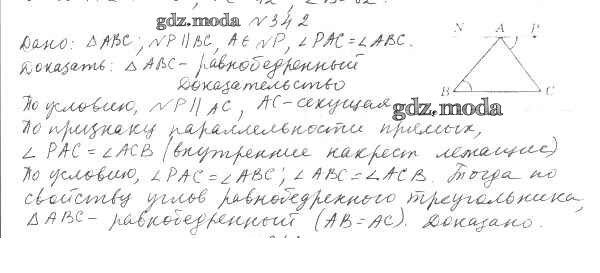 gdz.moda №342
Дано: △ABC; NP∥BC, A∈NP, ∠PAC=∠ABC.
Доказать: △ABC – равнобедренный
Доказательство
По условию, NP∥AC, AC–секущая
gdz.moda
По признаку параллельности прямых,
∠PAC=∠ACB (внутренние накрест лежащие)
По условию, ∠PAC=∠ABC; ∠ABC=∠ACB. Тогда по
свойству углов равнобедренного треугольника,
△ABC – равнобедренный (AB=AC). Доказано.
N A P
B C